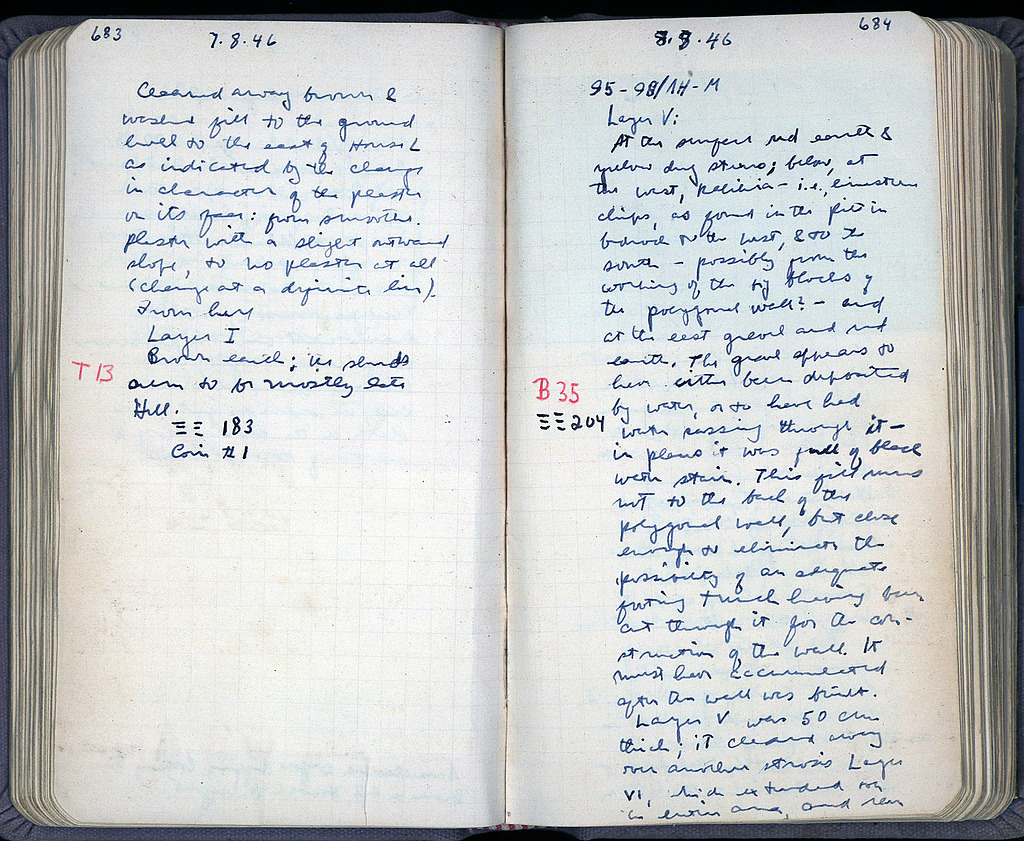 683
7.8.46
Cleared away brown &
washed fill to the ground
level to the east of House L
as indicated by the change
in character of the plaster
on its face: from smooth
plaster with a slight outward
slope, to no plaster at all
(change at a definite line).
From here
Layer I
T 13
Brown earth; its sherds
seem to be mostly late
Hell.
ΞΞ 183
Coin #1
684
8.8.46
95-98/ΛΗ-Μ
Layer V:
At the surface red earth &
yellow dug stereo; below, at
the west, - i.e., limestone
chips, as found in the pit in
bedrock to the west, & to the
south - possibly from the
working of the big blocks of
the polygonal wall? - and
at the east gravel and red
earth. The gravel appears to
B 35
have either been deposited
ΞΞ 204
by water, or to have had
water passing through it -
in places it was full of black
water stain. This fill runs
not to the back of the
polygonal wall, but close
enough to eliminate the
possibility of an adequate
footing trench having been
cut through it for the con-
struction of the wall. It
must have accumulated
after the wall was built.
Layer V was 50 cm
thick; it cleared away
over another strosis Layer
VI, which extended over
the entire area, and ran